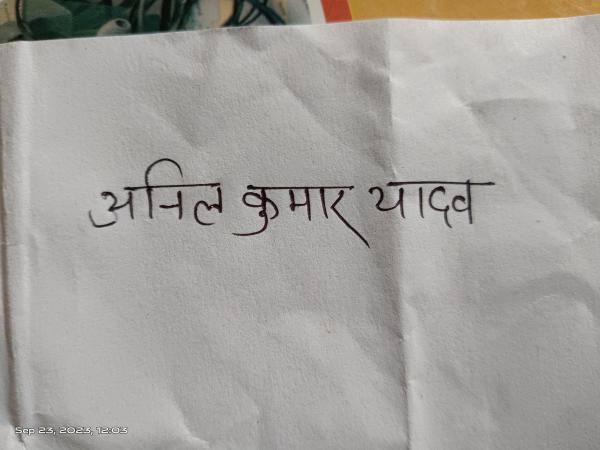 अनिल कुमार यादव
Sep 23, 2023, 12:03